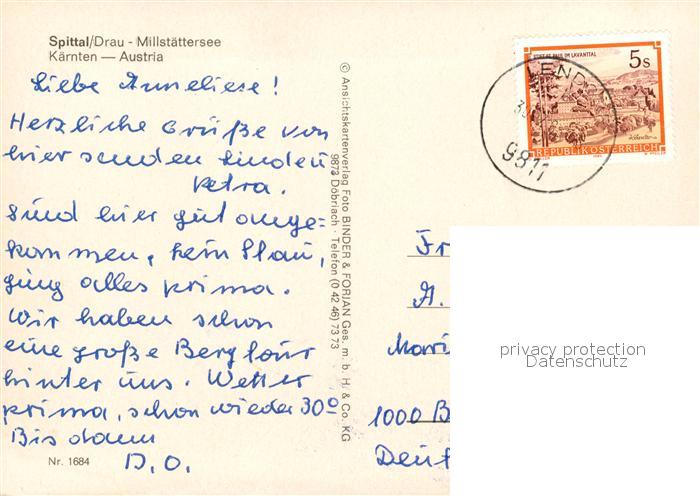 Spittal/Drau - Millstättersee
Kärnten — Austria
Liebe Anneliese!
Herzliche Grüße von
hier senden
Petra.
Sind hier gut ange=
kommen, kein Stau,
ging alles prima.
Wir haben schon
eine große Bergtour
hinter uns. Wetter
prima, schon wieder 30°
Bis dann
D.O.
Nr. 1684
© Ansichtskartenverlag Foto BINDER & FORIAN Ges. m. b. H. & Co. KG
9873 Döbriach - Telefon (0 42 46) 73 73
STIFT ST. PAUL IM LAVANTTAL
5s
REPUBLIK ÖSTERREICH
LEND
9811
Fr
A.
Mari
1000 B
Deut
privacy protection
Datenschutz